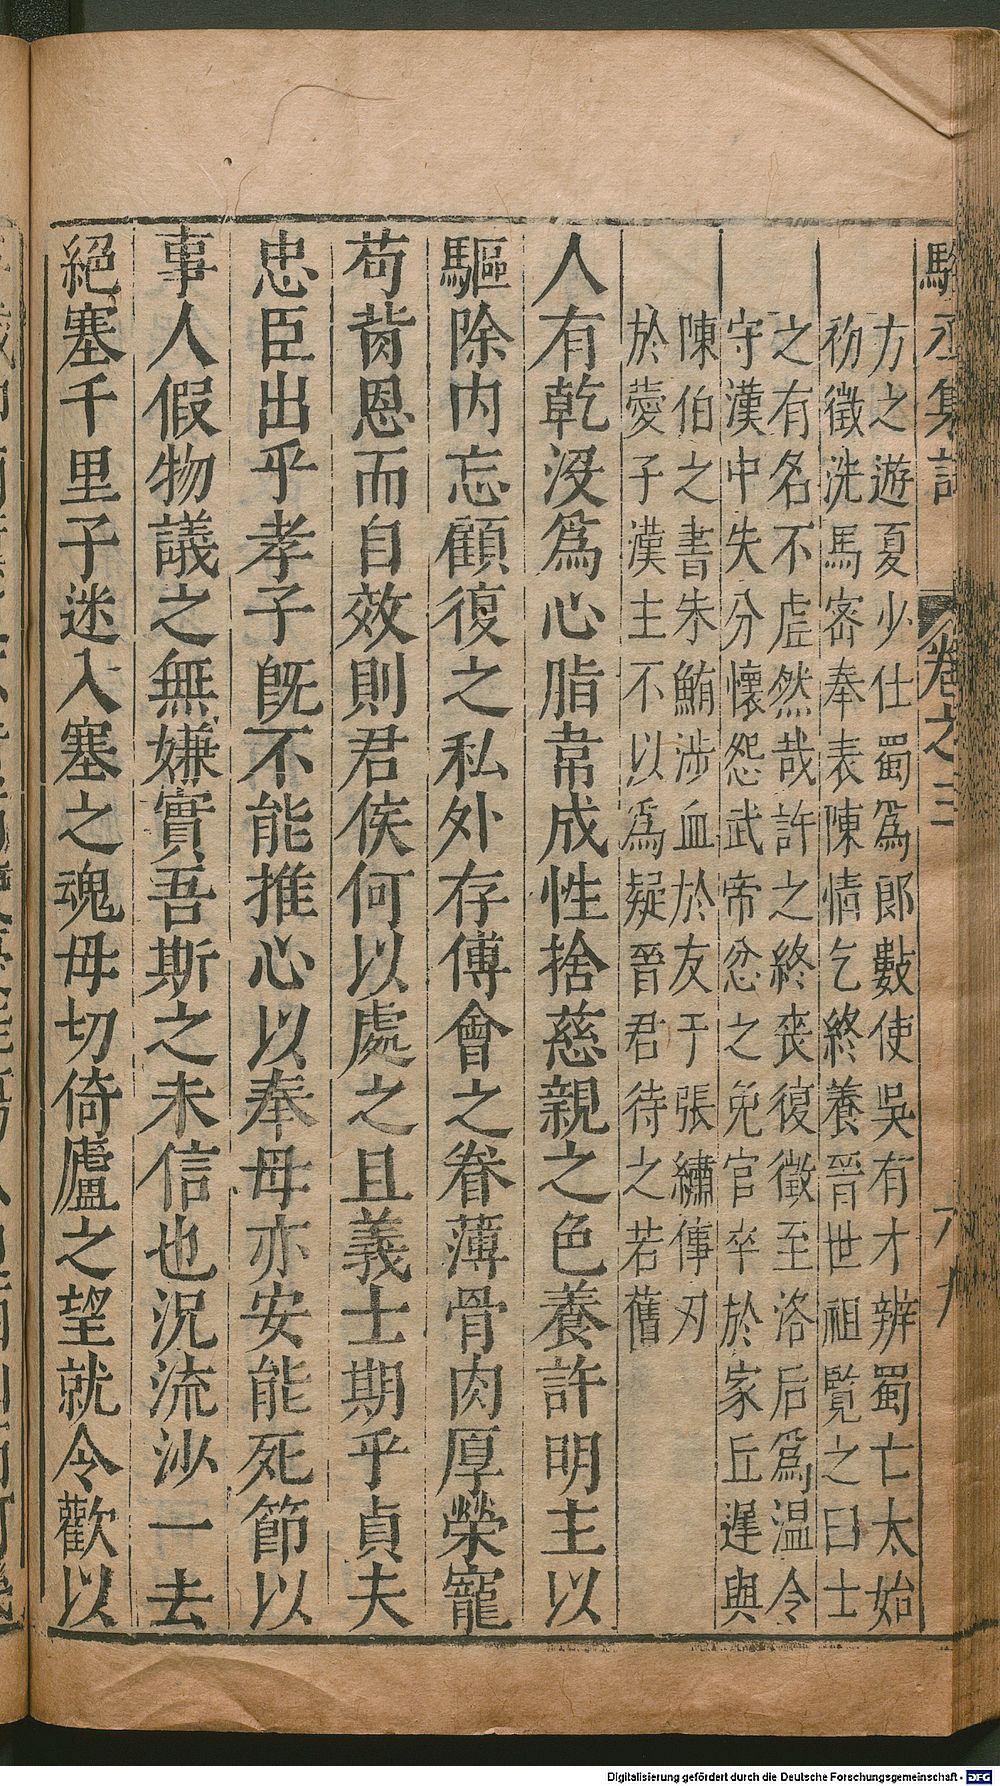 駱丞集註 卷之三 六九
方之遊夏少仕蜀爲郎數使吳有才辨蜀亡太始
初徵洗馬密奉表陳情乞終養晉世祖覽之曰士
之有名不虛然哉許之終喪復徵至洛后爲温令
守漢中失分懷怨武帝忿之免官卒於家丘遲與
陳伯之書朱鮪涉血於友于張繡倳刃
於愛子漢主不以爲疑晉君待之若舊
人有乾没爲心脂韋成性捨慈親之色養許明主以
驅除内忘顧復之私外存傅會之眷薄骨肉厚榮寵
苟背恩而自效則君侯何以處之且義士期乎貞夫
忠臣出乎孝子既不能推心以奉母亦安能死節以
事人假物議之無嫌實吾斯之未信也況流沙一去
絕塞千里子迷入塞之魂母切倚廬之望就令歡以
Digitalisierung gefördert durch die Deutsche Forschungsgemeinschaft - DFG